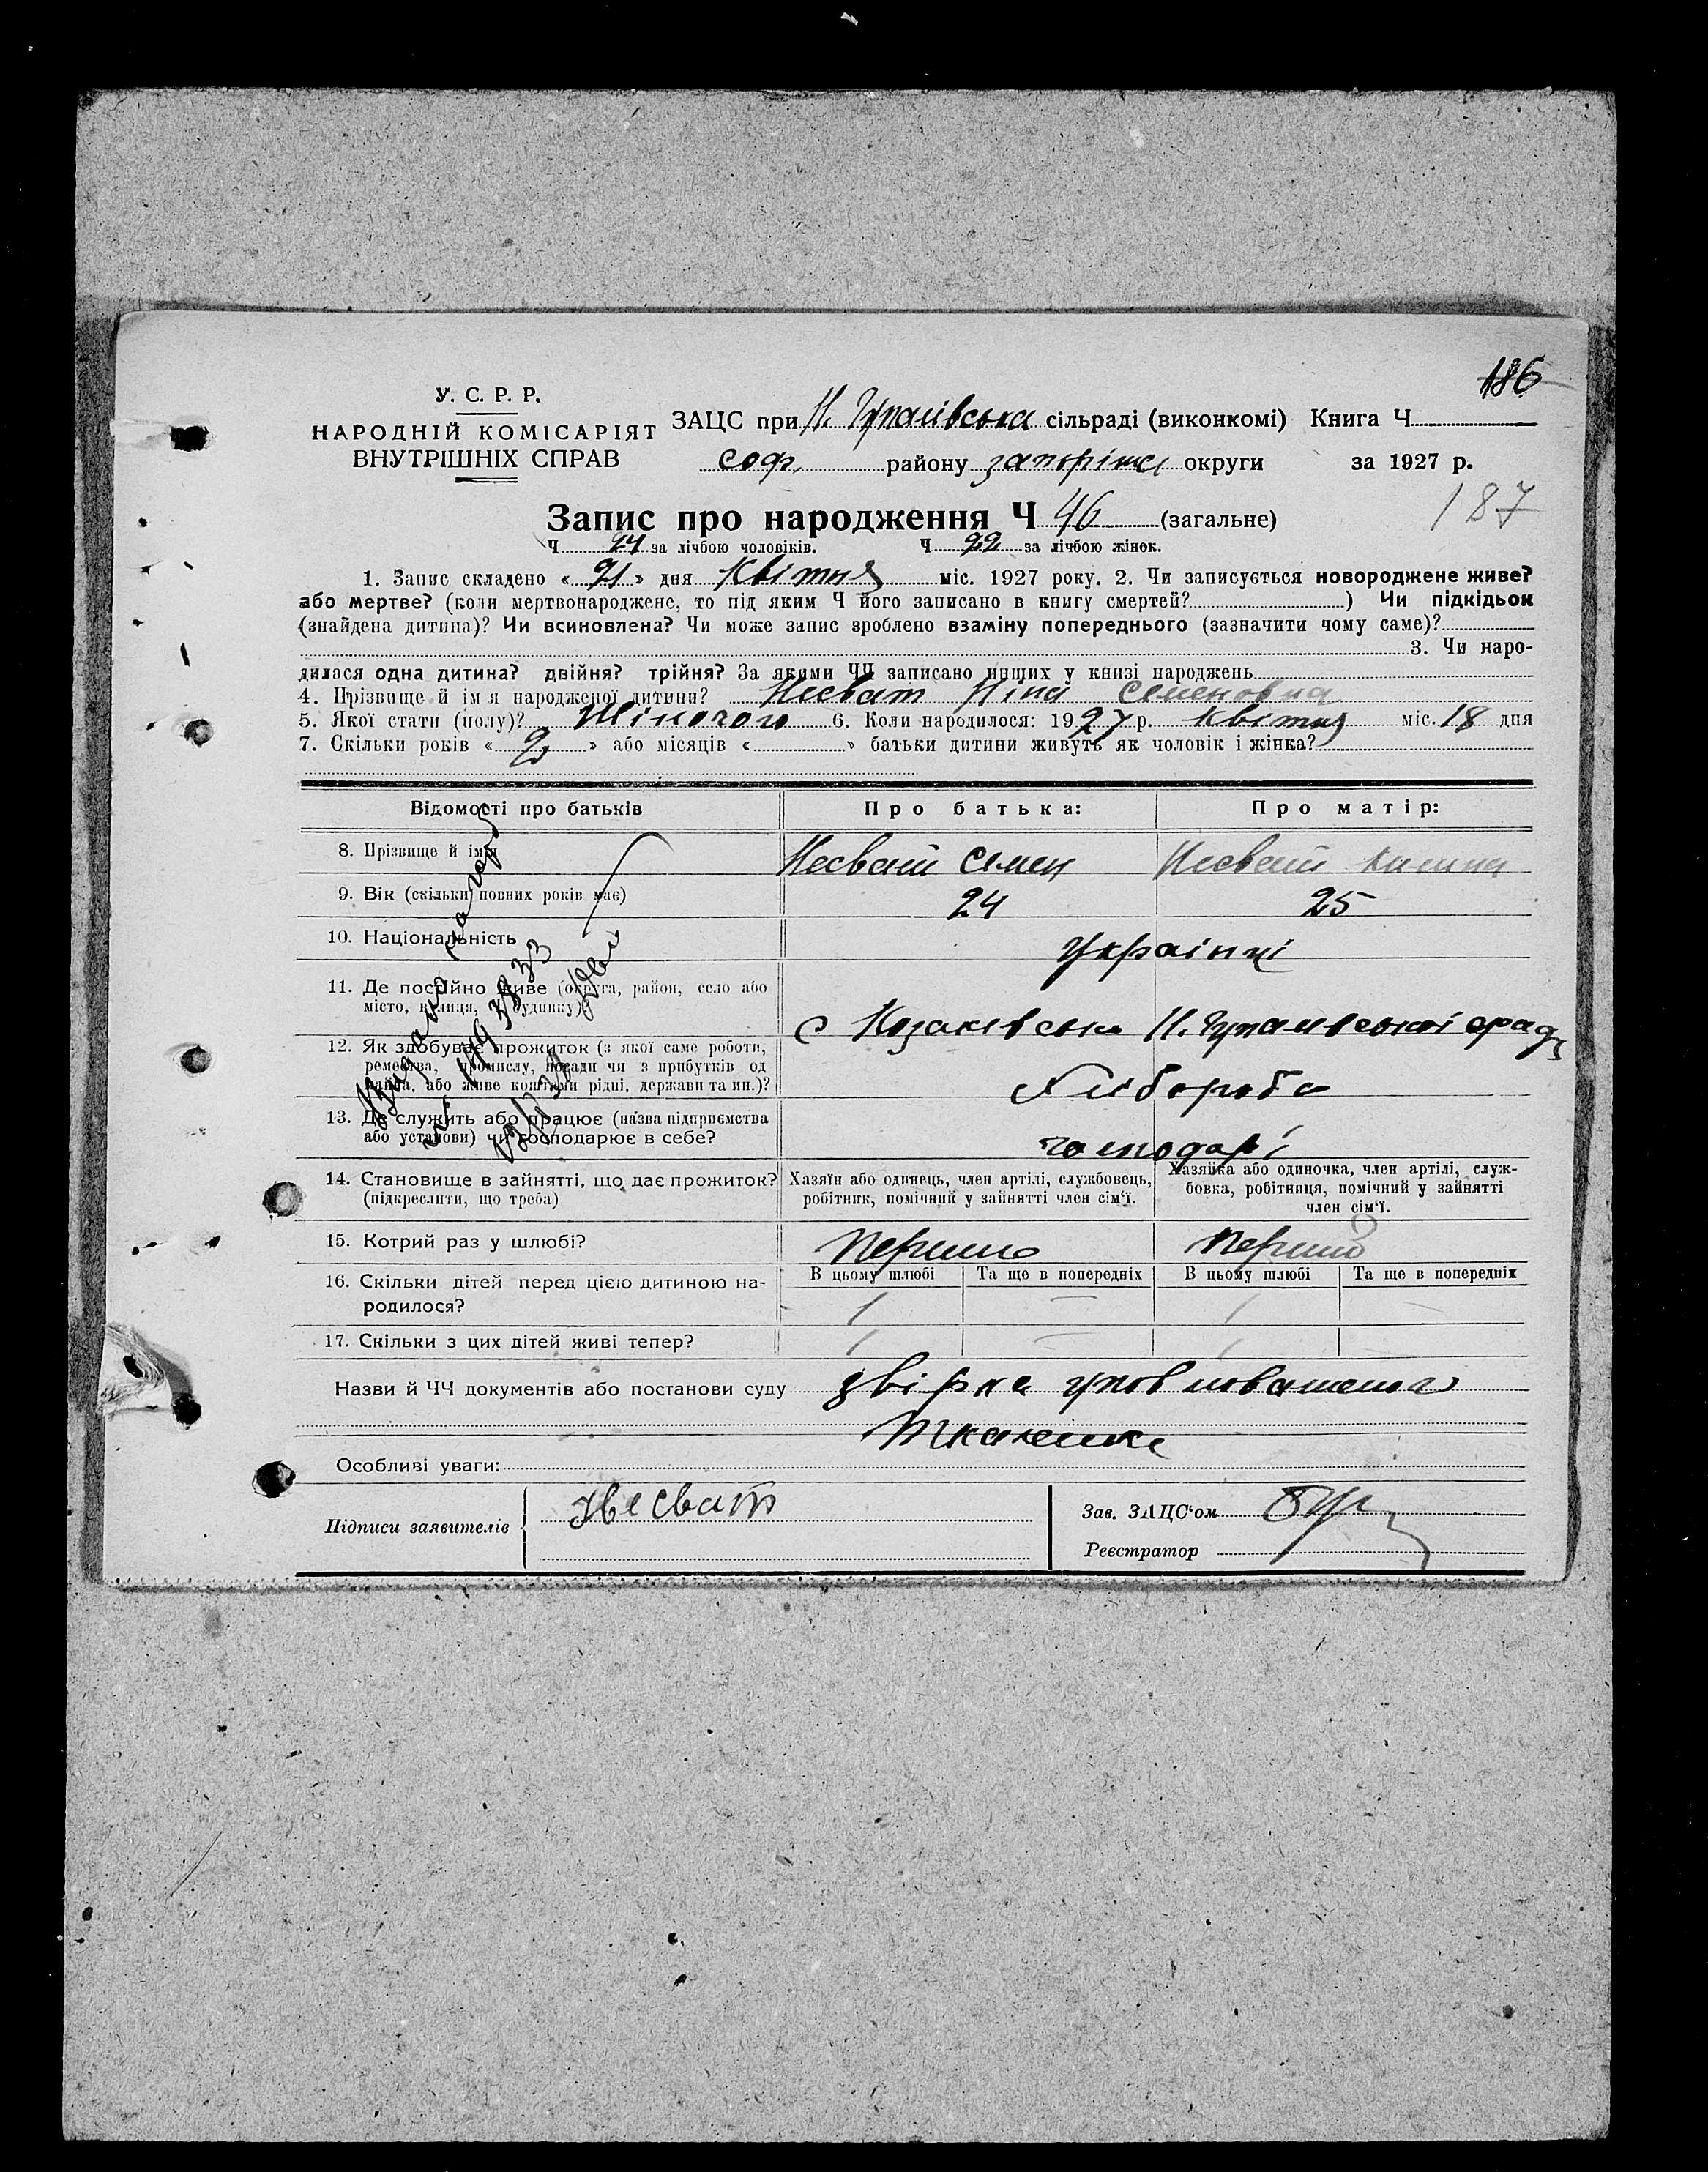 186
У. С. Р. Р.
НАРОДНІЙ КОМІСАРІЯТ
ВНУТРІШНІХ СПРАВ
ЗАЦС при Н. сільраді (виконкомі) Книга Ч
соф. району округи за 1927 р.
187
Запис про народження Ч 46 (загальне)
Ч 24 за лічбою чоловіків. Ч 22 за лічбою жінок.
1. Запис складено « 21 » дня Квітня міс. 1927 року. 2. Чи записується новороджене живе?
або мертве? (коли мертвонароджене, то під яким Ч його записано в книгу смертей? ) Чи підкідьок
(знайдена дитина)? Чи всиновлена? Чи може запис зроблено взаміну попереднього (зазначити чому саме)?
3. Чи наро-
дилася одна дитина? двійня? трійня? За якими ЧЧ записано инших у книзі народжень
4. Прізвище й ім я народженої дитини? Несват Ніна Семеновна
5. Якої стати (полу)? Жіночого 6. Коли народилося: 1927 р. Квітня міс. 18 дня
7. Скільки років « 2 » або місяців « » батьки дитини живуть як чоловік і жінка?
Відомості про батьків Про батька: Про матір:
8. Прізвище й імя Несват Семен Несват
9. Вік (скільки повних років має) 24 25
10. Національність Українці
11. Де постійно живе (округа, район, село або
місто, вулиця, Ч будинку)?
с
12. Як здобуває прожиток (з якої саме роботи,
ремества, промислу, посади чи з прибутків од
майна, або живе коштами рідні, держави та ин.)?
Хлібороби
13. Де служить або працює (назва підприємства
або установи) чи господарює в себе?
господарі
14. Становище в зайнятті, що дає прожиток?
(підкреслити, що треба)
Хазяїн або одинець, член артілі, службовець,
робітник, помічний у зайнятті член сім‘ї.
Хазяйка або одиночка, член артілі, служ-
бовка, робітниця, помічний у зайнятті
член сім‘ї.
15. Котрий раз у шлюбі?
16. Скільки дітей перед цією дитиною на-
родилося?
В цьому шлюбі Та ще в попередніх В цьому шлюбі Та ще в попередніх
1 — 1 —
17. Скільки з цих дітей живі тепер? 1 — 1 —
Назви й ЧЧ документів або постанови суду звірка
Особливі уваги:
Підписи заявителів Несват
Зав. ЗАЦС‘ом
Реєстратор